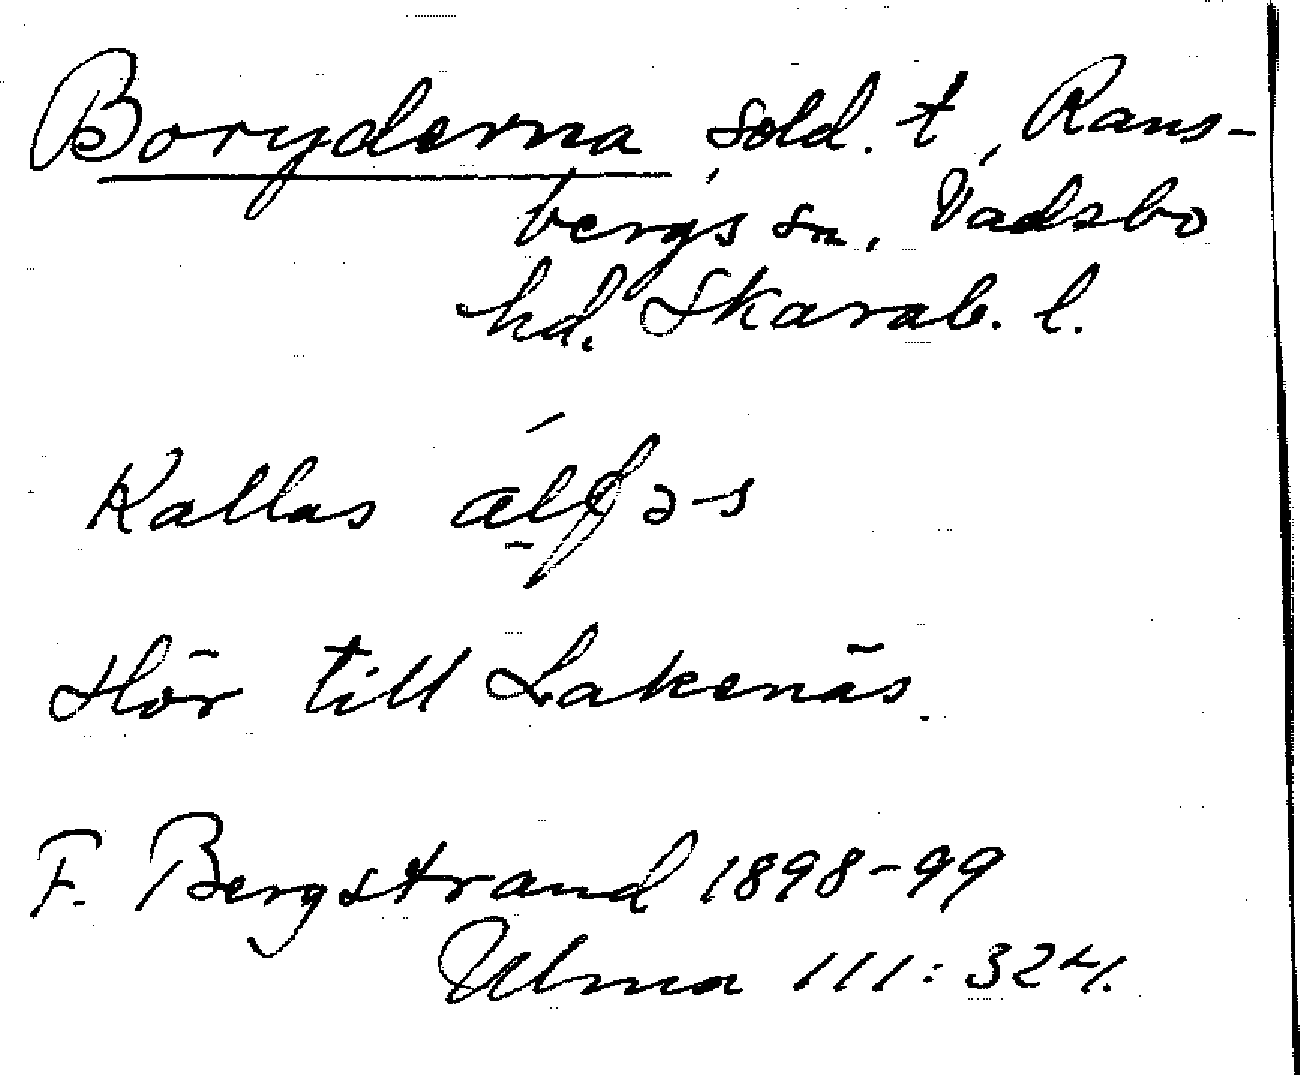 Boryderna, sold. t, Rans-
bergs sn. Vadsbo
hd. Skarab. l.
Kallas
Hör till Lakenäs.
F. Bergstrand 1898-99
Ulma 111:324.